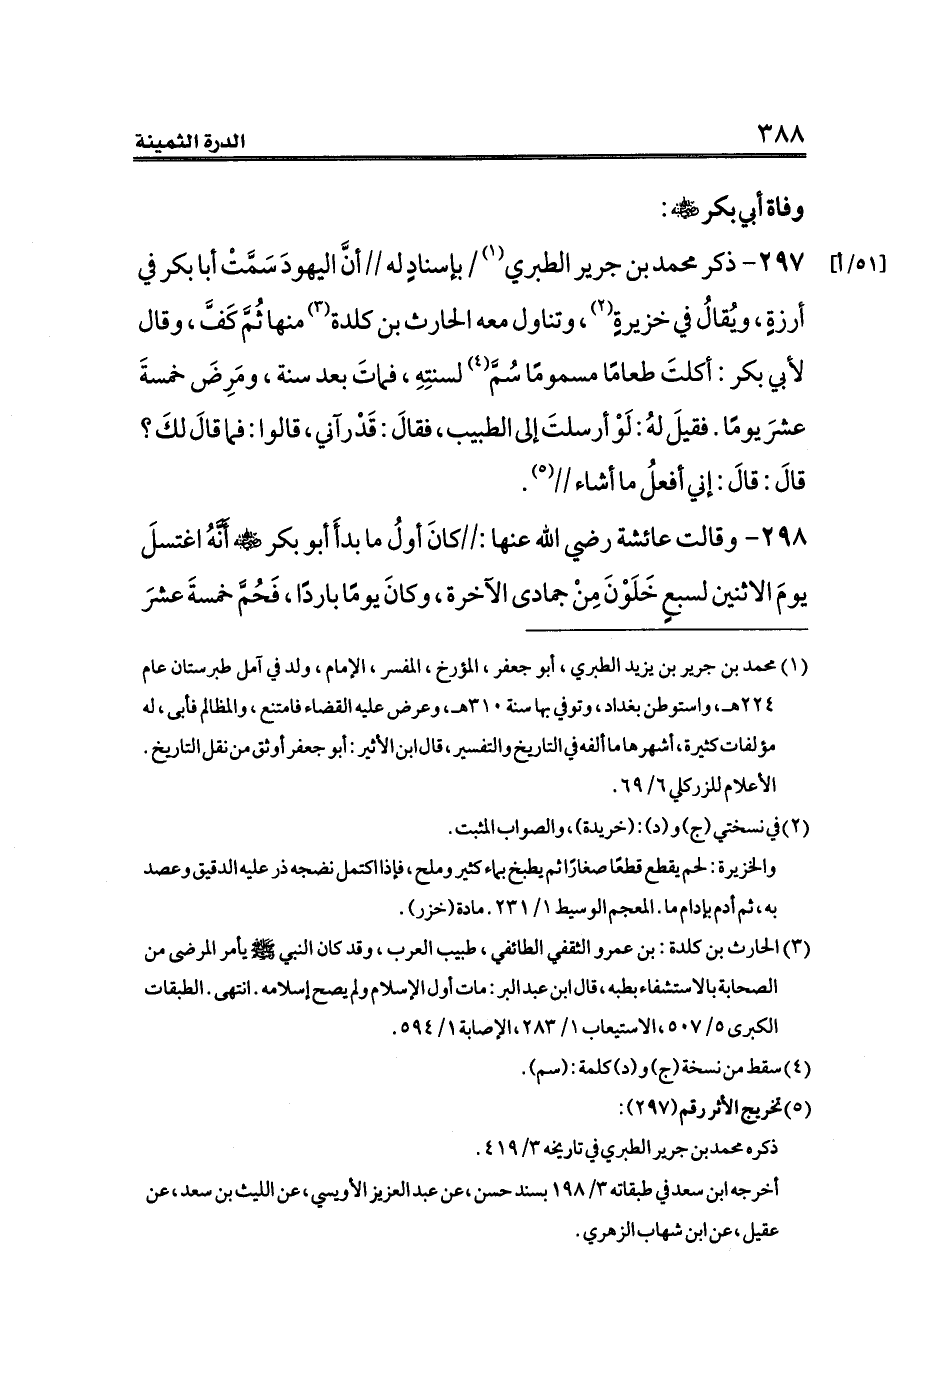 ٣٨٨ الدرة الثمينة
وفاة أبي بكر ﵁:
[٥١/أ] ٢٩٧- ذكر محمد بن جرير الطبري(١)/ بإسنادٍ له // أنَّ اليهودَ سَمَّتْ أبا بكر في
أرزةٍ، ويُقالُ في خزيرةٍ(٢)، وتناول معه الحارث بن كلدة(٣) منها ثُمَّ كَفَّ، وقال
لأبي بكر: أكلتَ طعامًا مسمومًا سُمَّ(٤) لسنتِهِ، فماتَ بعد سنة، ومَرِضَ خمسةَ
عشرَ يومًا. فقيلَ لهُ: لَوْ أرسلتَ إلى الطبيب، فقالَ: قَدْ رآني، قالوا: فما قالَ لكَ؟
قالَ: قالَ: إني أفعلُ ما أشاء //(٥).
٢٩٨- وقالت عائشة رضي الله عنها: //كانَ أولُ ما بدأَ أبو بكر ﵁ أنَّهُ اغتسلَ
يومَ الاثنين لسبعٍ خَلَوْنَ مِنْ جمادى الآخرة، وكانَ يومًا باردًا، فَحُمَّ خمسةَ عشرَ
(١) محمد بن جرير بن يزيد الطبري، أبو جعفر، المؤرخ، المفسر، الإمام، ولد في آمل طبرستان عام
٢٢٤هـ، واستوطن بغداد، وتوفي بها سنة ٣١٠هـ، وعرض عليه القضاء فامتنع، والمظالم فأبى، له
مؤلفات كثيرة، أشهرها ما ألفه في التاريخ والتفسير، قال ابن الأثير: أبو جعفر أوثق من نقل التاريخ.
الأعلام للزركلي ٦/ ٦٩.
(٢) في نسختي (ج) و(د): (خريدة)، والصواب المثبت.
والخزيرة: لحم يقطع قطعًا صغارًا ثم يطبخ بماء كثير وملح، فإذا اكتمل نضجه ذر عليه الدقيق وعصد
به، ثم أدم بإدام ما. المعجم الوسيط ١/ ٢٣١. مادة (خزر).
(٣) الحارث بن كلدة: بن عمرو الثقفي الطائفي، طبيب العرب، وقد كان النبي ﷺ يأمر المرضى من
الصحابة بالاستشفاء بطبه، قال ابن عبد البر: مات أول الإسلام ولم يصح إسلامه. انتهى. الطبقات
الكبرى ٥/ ٥٠٧، الاستيعاب ١/ ٢٨٣، الإصابة ١/ ٥٩٤.
(٤) سقط من نسخة (ج) و(د) كلمة: (سم).
(٥) تخريج الأثر رقم (٢٩٧):
ذكره محمد بن جرير الطبري في تاريخه ٣/ ٤١٩.
أخرجه ابن سعد في طبقاته ٣/ ١٩٨ بسند حسن، عن عبد العزيز الأويسي، عن الليث بن سعد، عن
عقيل، عن ابن شهاب الزهري.